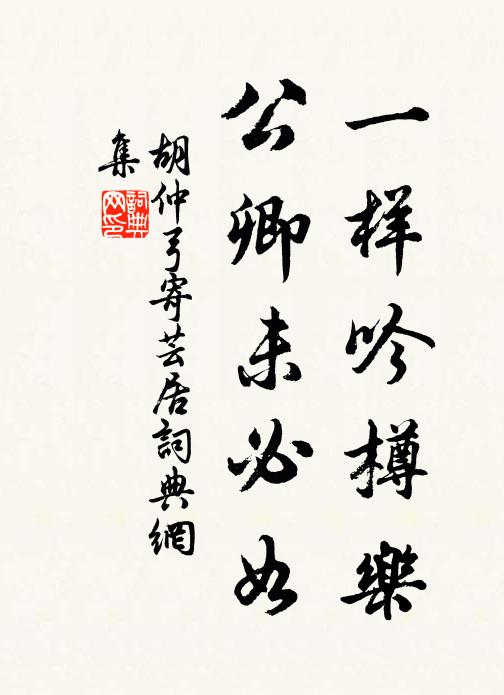 一样吟樽樂
公卿未必如
胡仲弓寄芸居詞典網
集
詞典
网印